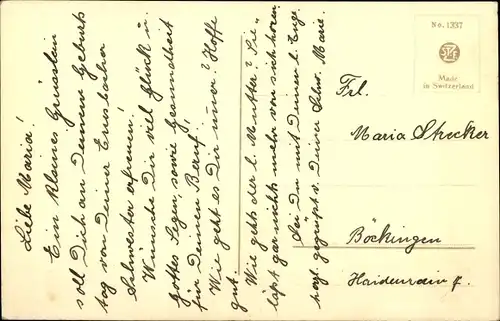 Liebe Maria!
Ein kleines Grüsslein
soll Dich an Deinem Geburts
tag von Deiner Erwbacher
Schwester erfreuen.
Wünsche Dir viel Glück u.
Gottes Segen, sowie Gesundheit
für Deinen Beruf,
Wie geht es Dir immer? Hoffe
gut.
Wie gehts der l. Mutter? Sie
läßt gar nichts mehr von sich hören.
Sei Du mit Deiner l.
herzl. gegrüßt v. Deiner Schw. Marie.
No. 1337
Made
in Switzerland
Frl.
Maria Stecker
Böckingen
Haidenrain 7.